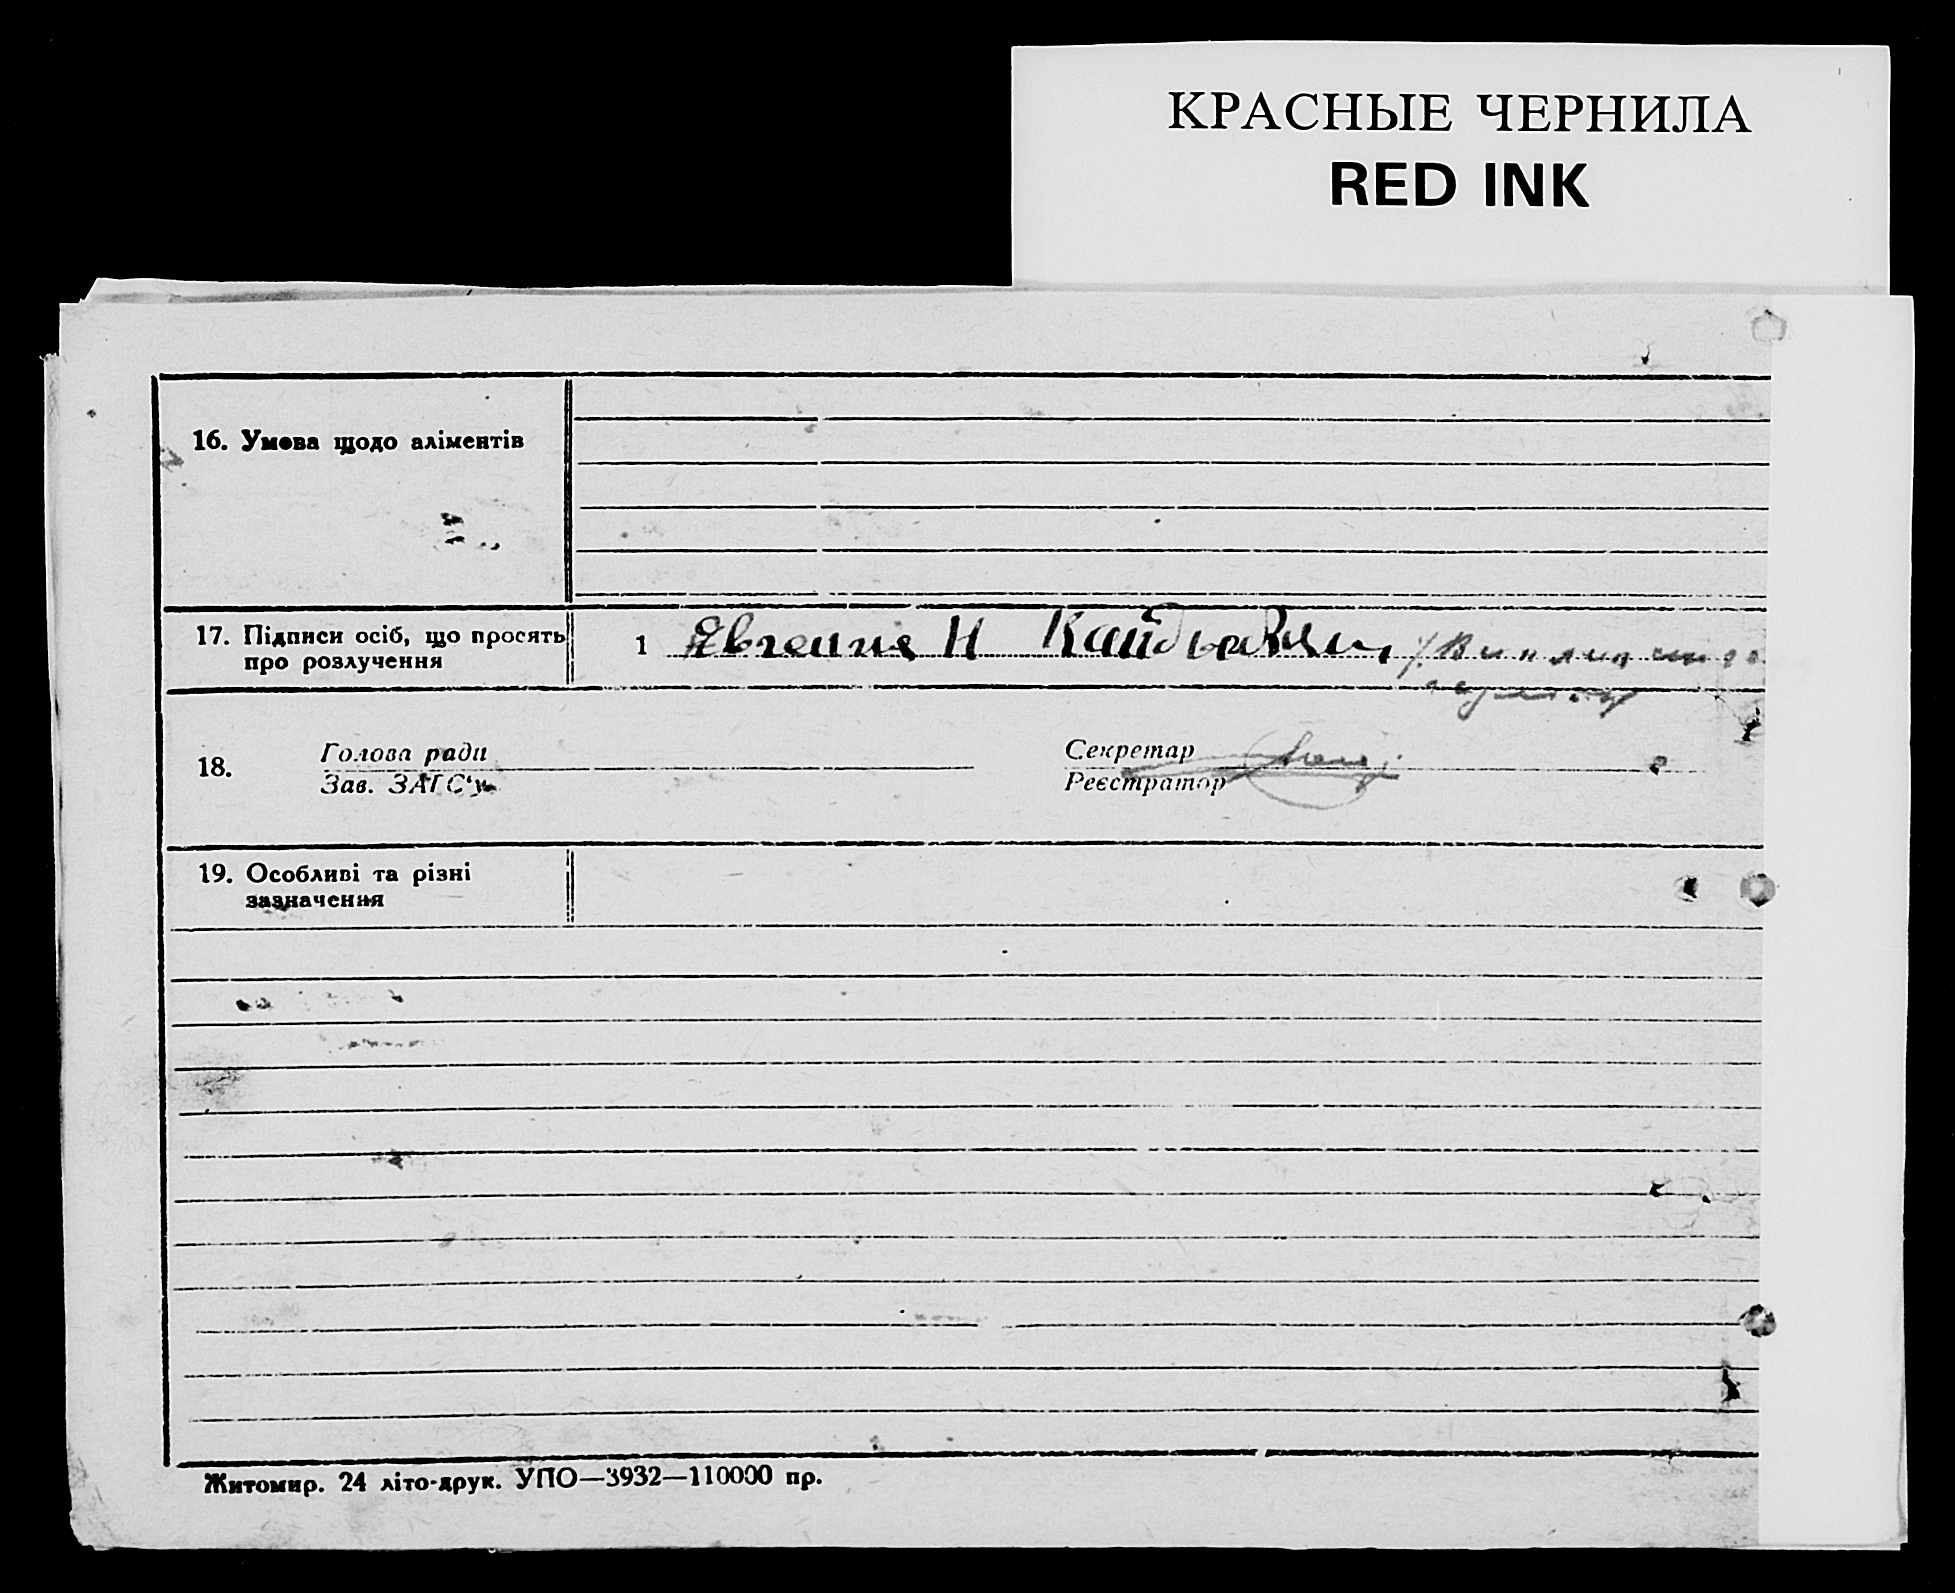 КРАСНЫЕ ЧЕРНИЛА
RED INK
16. Умова щодо аліментів
17. Підписи осіб, що просять
про розлучення
1
18.
Голова ради
Зав. ЗАГС'у
Секретар
Реєстратор
19. Особливі та різні
зазначення
Житомир. 24 літо-друк. УПО—3932—110000 пр.